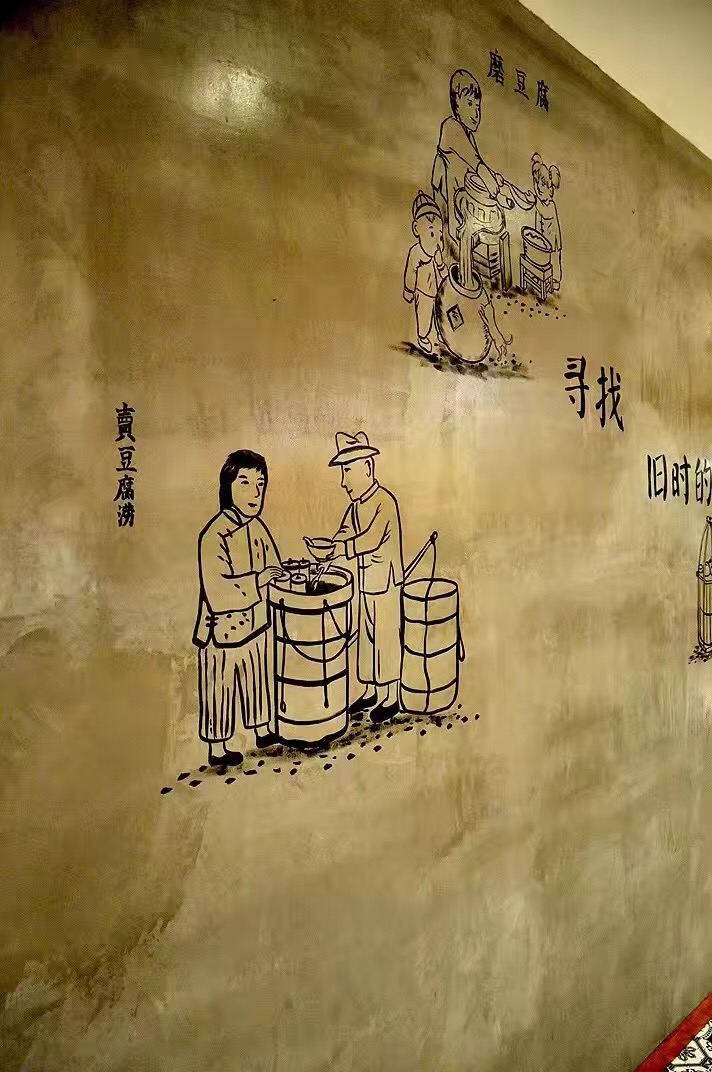 磨豆腐
寻找
旧时的
賣豆腐涝